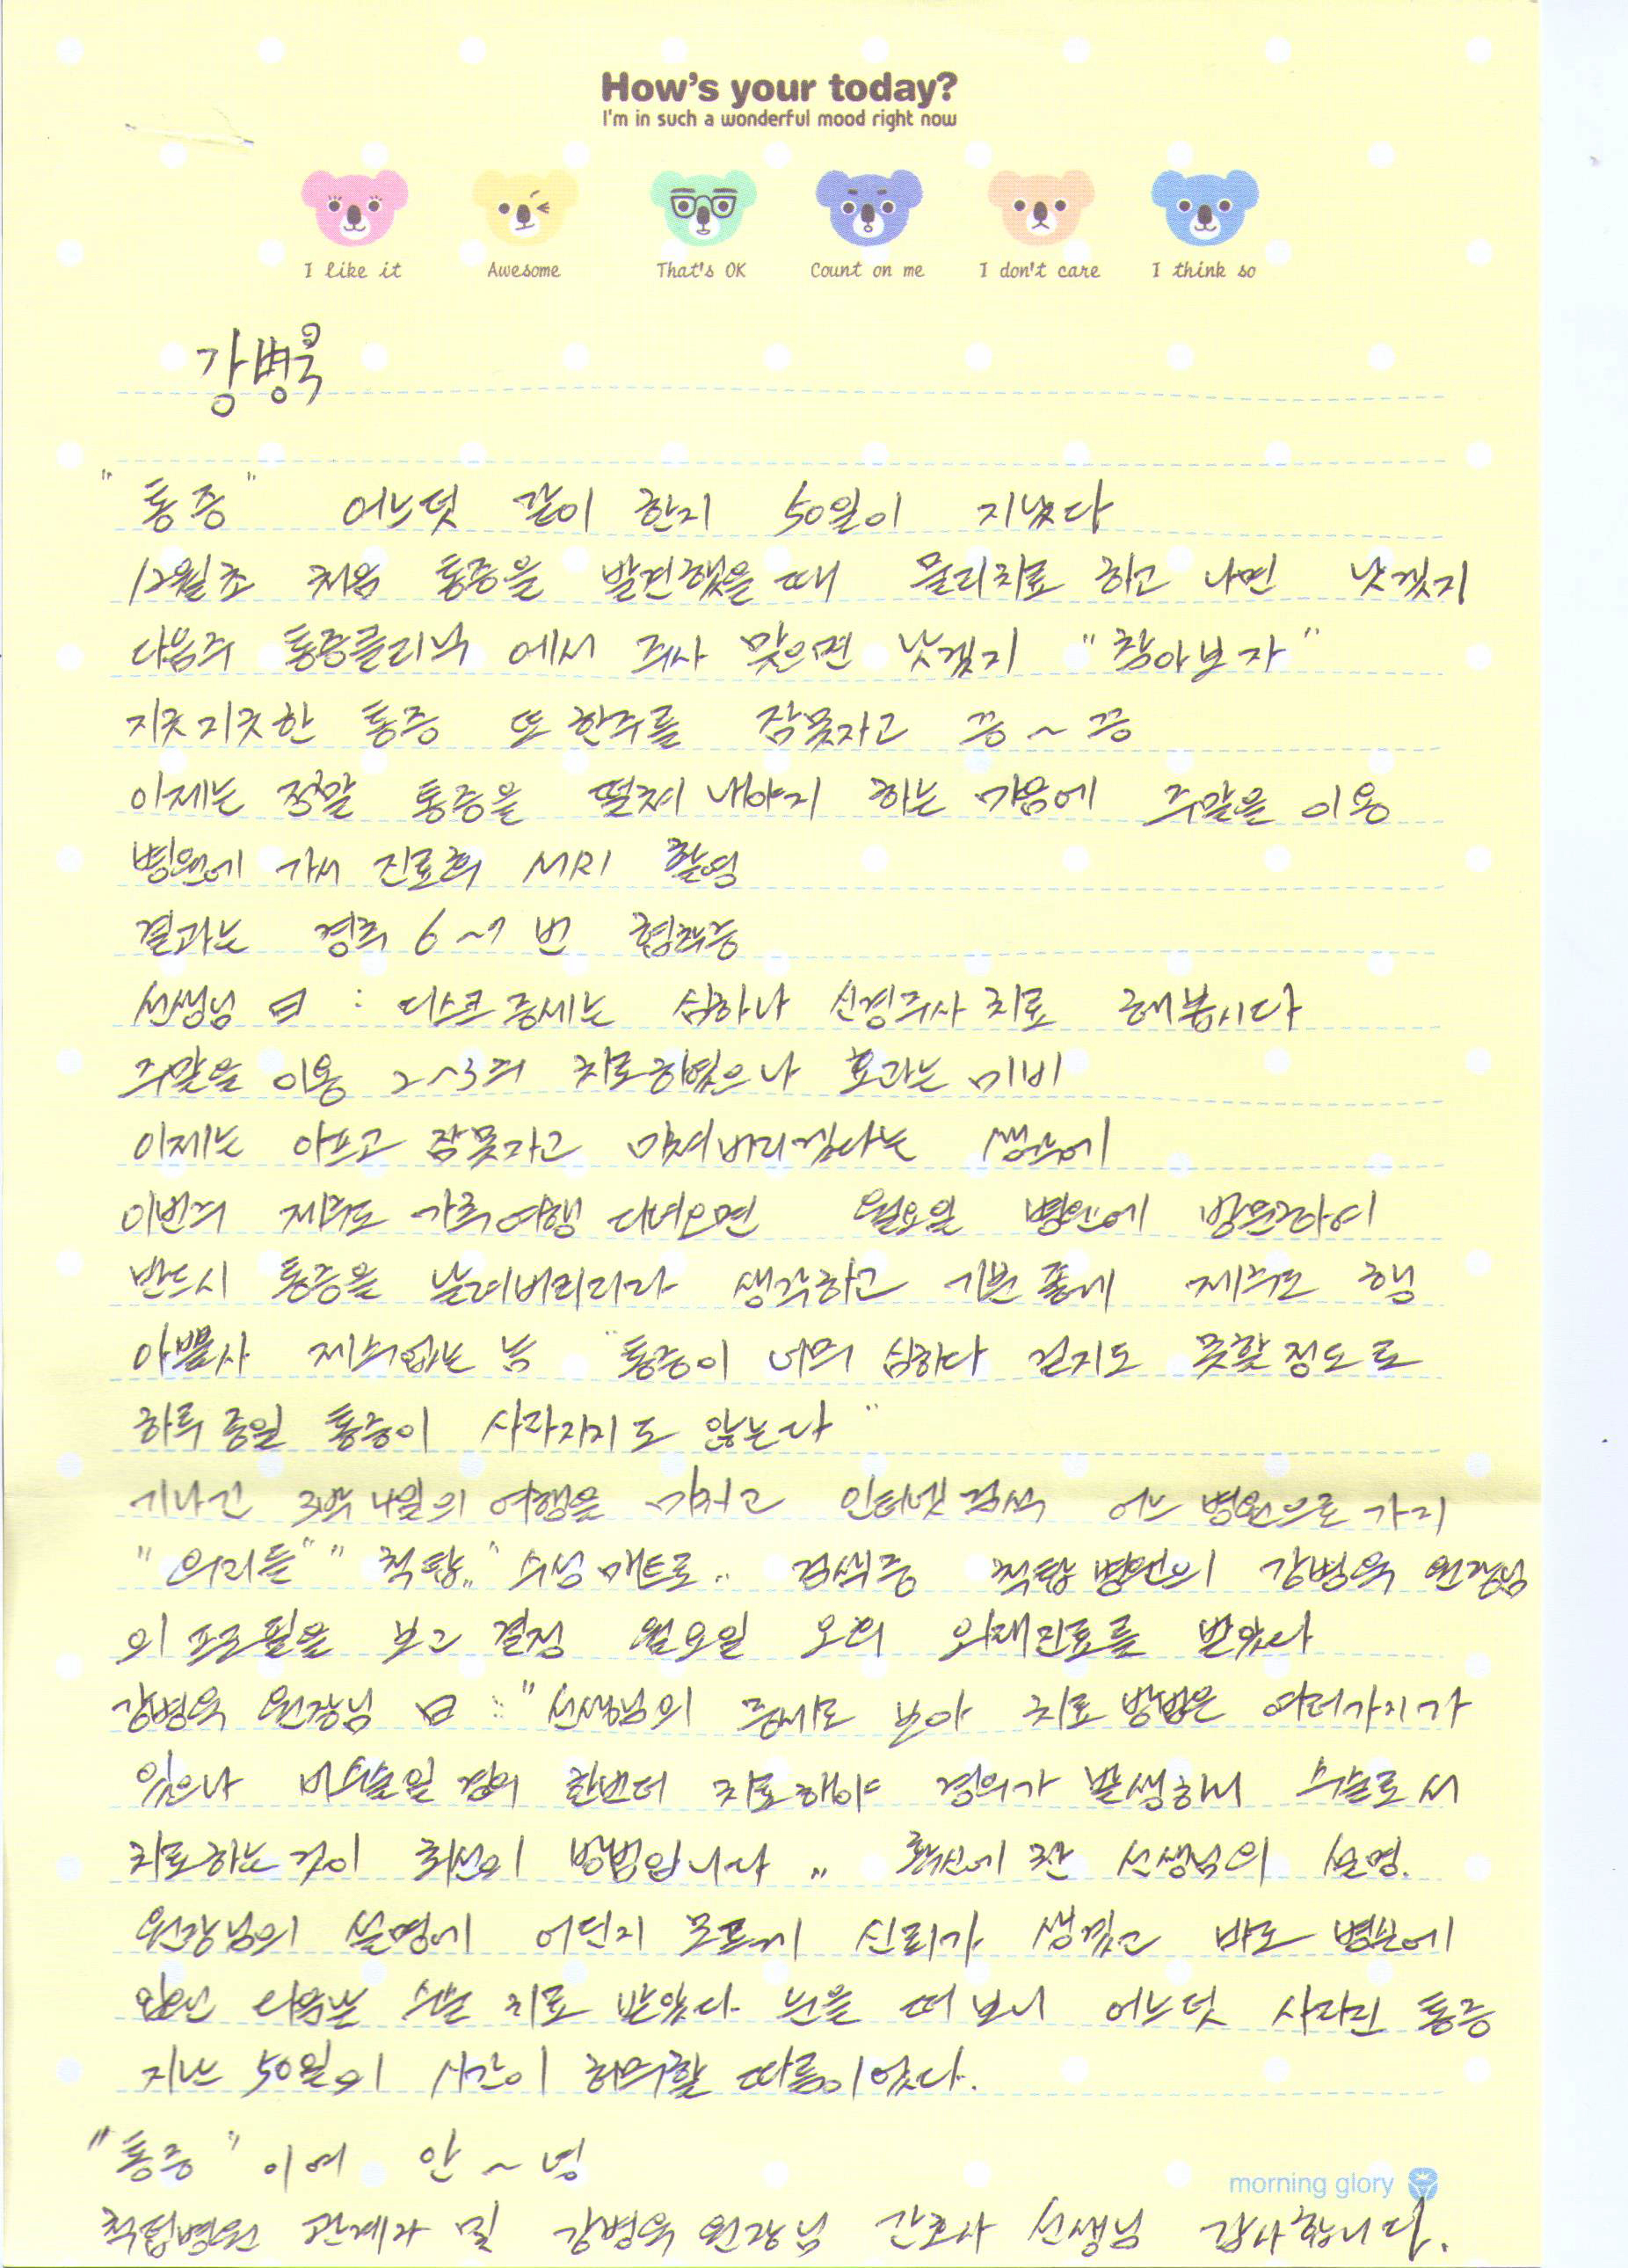 How's your today?
I'm in such a wonderful mood right now
I like it Awesome That's OK Count on me I don't care I think so
강병욱
"통증" 어느덧 같이 한지 50일이 지났다
12월초 처음 통증을 발견했을 때 물리치료 하고 나면 낫겠지
다음주 통증클리닉 에서 주사 맞으면 낫겠지 "참아보자"
지긋지긋한 통증 또 한주를 잠못자고 끙~끙
이제는 정말 통증을 떨쳐 내야지 하는 마음에 주말을 이용
병원에 가서 진료후 MRI 촬영
결과는 경추 6~7 번 협착증
선생님 曰 : 디스크 증세는 심하나 신경주사 치료 해봅시다
주말을 이용 2~3주 치료하였으나 효과는 미비
이제는 아프고 잠못자고 미쳐버리겠다는 생각에
이번주 제주도 가족여행 다녀오면 월요일 병원에 방문하여
반드시 통증을 날려버리리라 생각하고 기분 좋게 제주도 행
아뿔사 재수없는 놈 "통증이 너무 심하다 걷지도 못할 정도로
하루 종일 통증이 사라지지도 않는다"
기나긴 3박 4일의 여행을 마치고 인터넷 검색 어느 병원으로 가지
" 우리들" " 척탑" 수성 메트로.. 검색중 척탑병원의 강병욱 원장님
의 프로필을 보고 결정 월요일 오후 외래진료를 받았다
강병욱 원장님 曰 : "선생님의 증세로 보아 치료 방법은 여러가지가
있으나 비수술일 경우 한번더 치료해야 경우가 발생하니 수술로서
치료하는 것이 최선의 방법입니다" 확신에 찬 선생님의 설명.
원장님의 설명에 어딘지 모르게 신뢰가 생겼고 바로 병원에
입원 다음날 수술 치료 받았다 눈을 떠 보니 어느덧 사라진 통증
지난 50일의 시간이 허무할 따름이었다.
"통증" 이여 안~녕
척탑병원 관계자 및 강병욱 원장님 간호사 선생님 감사합니다.
morning glory